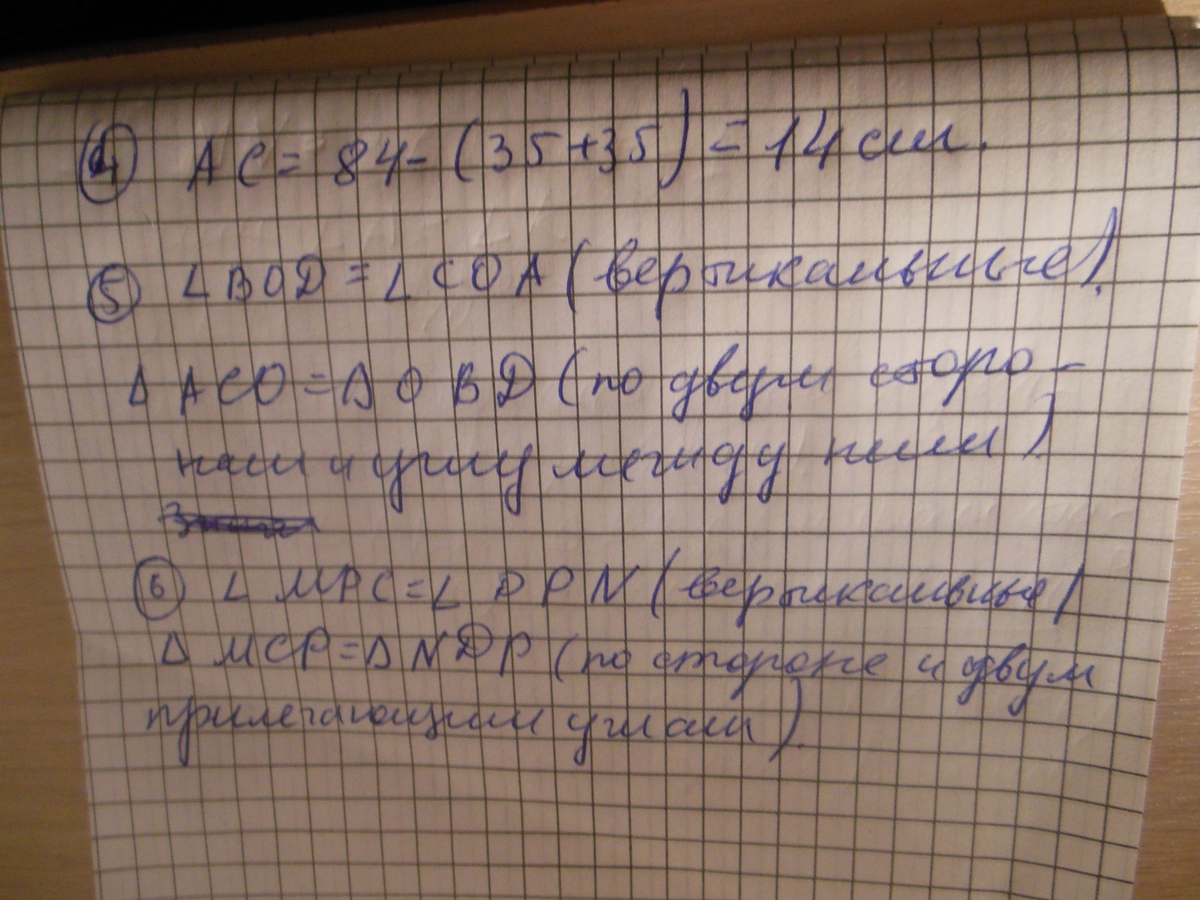 ④ AC = 84 - (35+35) = 14 см.
⑤ ∠BOD = ∠COA (вертикальные).
Δ ACO = Δ OBD (по двум сторо-
нам и углу между ними)
⑥ ∠ MPC = ∠ DPN (вертикальные)
Δ MCP = Δ NDP (по стороне и двум
прилегающим углам).